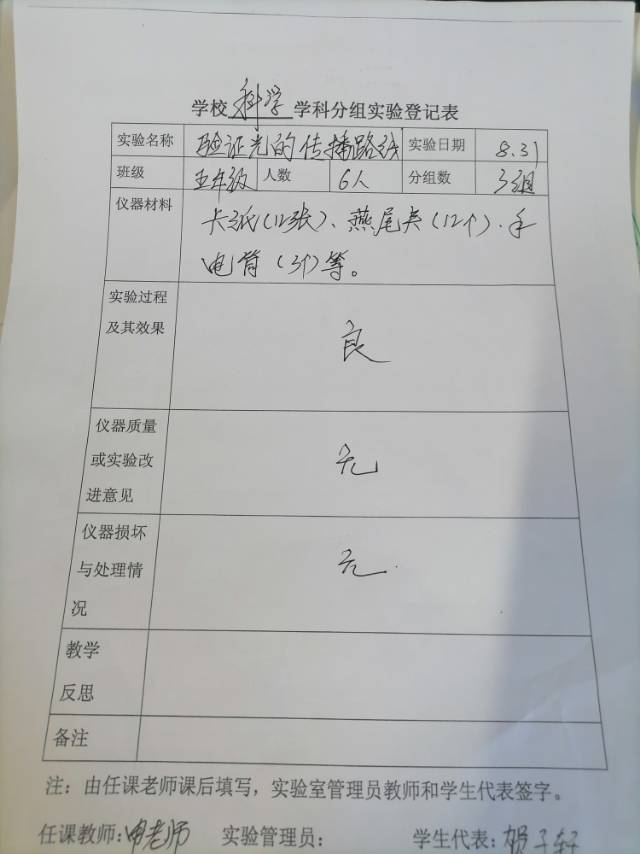 学校科学学科分组实验登记表
实验名称 验证光的传播路线 实验日期 8.31
班级 五年级 人数 6人 分组数 3组
仪器材料 卡纸(12张)、燕尾夹(12个)、手
电筒(3个)等。
实验过程
及其效果 良
仪器质量
或实验改 无
进意见
仪器损坏
与处理情 无.
况
教学
反思
备注
注：由任课老师课后填写，实验室管理员教师和学生代表签字。
任课教师:申老师 实验管理员: 学生代表:子轩